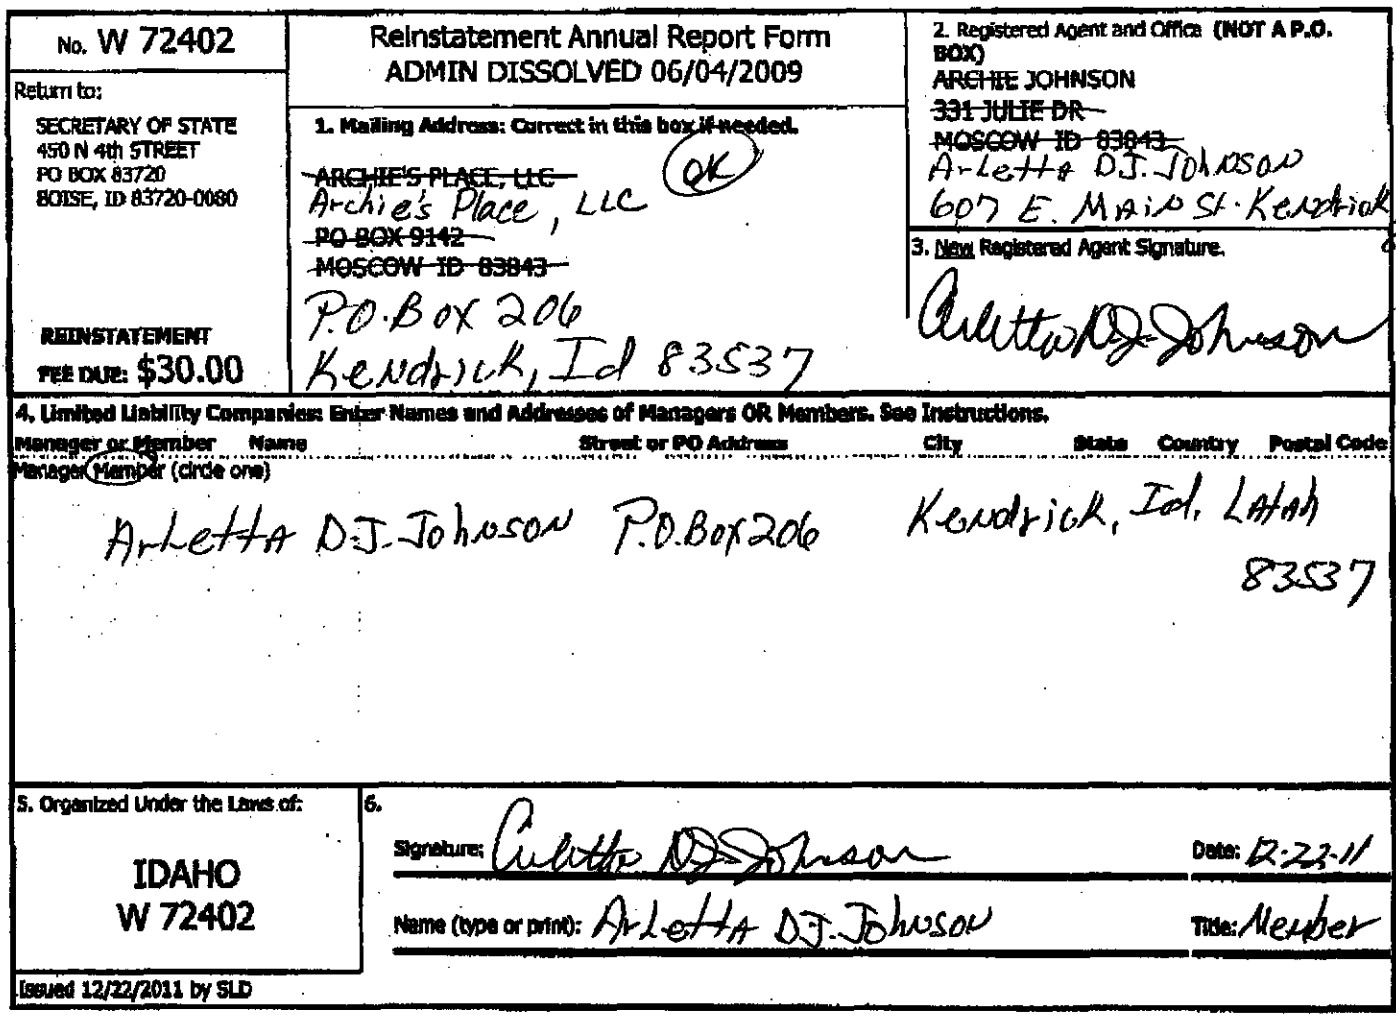 No. W 72402
Return to:
SECRETARY OF STATE
450 N 4th STREET
PO BOX 83720
BOISE, ID 83720-0080
REINSTATEMENT
FEE DUE: $30.00
Reinstatement Annual Report Form
ADMIN DISSOLVED 06/04/2009
1. Mailing Address: Correct in this box if needed.
OK
ARCHIE'S PLACE, LLC
Archie's Place, LLC
PO BOX 9142
MOSCOW ID 83843
P.O. Box 206
Kendrick, Id 83537
2. Registered Agent and Office (NOT A P.O.
BOX)
ARCHIE JOHNSON
331 JULIE DR
MOSCOW ID 83843
Arletta D.J. Johnson
607 E. Main St. Kendrick
3. New Registered Agent Signature.
Arletta D.J. Johnson
4. Limited Liability Companies: Enter Names and Addresses of Managers OR Members. See Instructions.
Manager or Member Name Street or PO Address City State Country Postal Code
Manager Member (circle one)
Arletta D.J. Johnson P.O. Box 206 Kendrick, Id. Latah
83537
5. Organized Under the Laws of:
IDAHO
W 72402
6.
Signature: Arletta D.J. Johnson Date: 12-22-11
Name (type or print): Arletta D.J. Johnson Title: Member
Issued 12/22/2011 by SLD